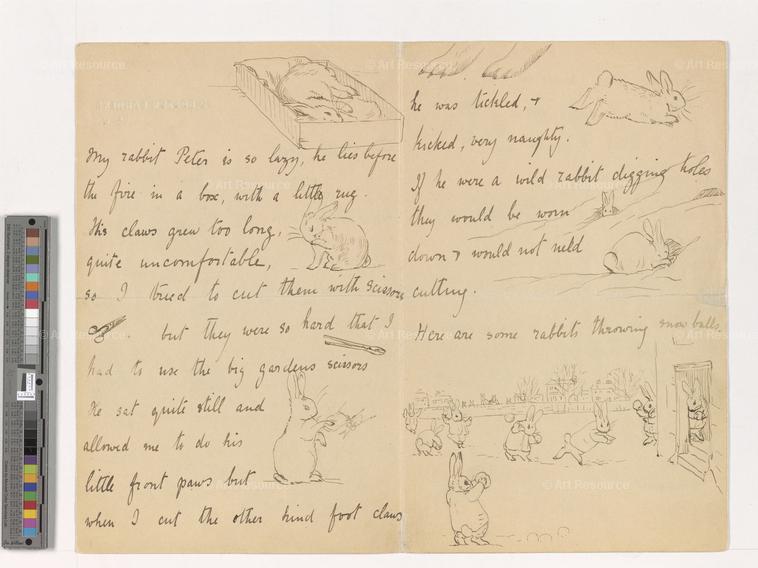 My rabbit Peter is so lazy, he lies before
the fire in a box, with a little rug.
His claws grew too long,
quite uncomfortable,
so I tried to cut them with scissors
but they were so hard that I
had to use the big gardens scissors
He sat quite still and
allowed me to do his
little front paws but
when I cut the other hind foot claws
he was tickled, &
kicked, very naughty.
If he were a wild rabbit digging holes
they would be worn
down & would not need
cutting.
Here are some rabbits throwing snow balls.
© Art Resource
© Art Resource
© Art Resource
© Art Resource
© Art Resource